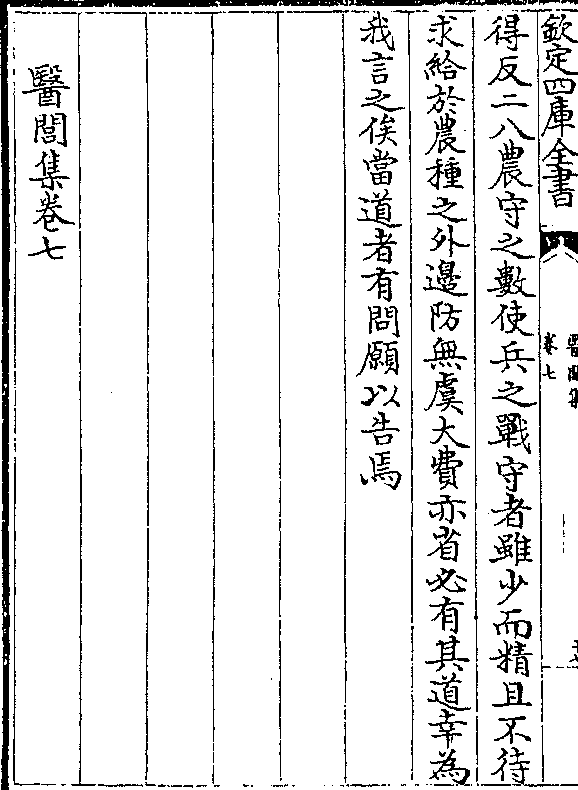 欽定四庫全書
醫閭集
卷七
得反二八農守之數使兵之戰守者雖少而精且不待
求給於農種之外邊防無虞大費亦省必有其道幸為
我言之俟當道者有問願以告焉
醫閭集卷七